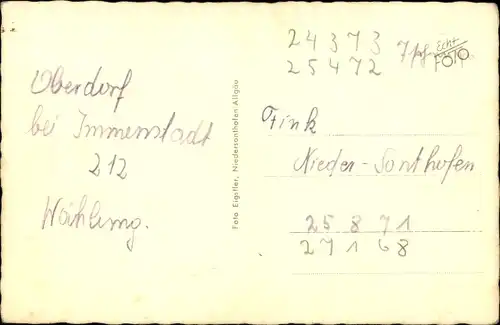 Oberdorf
bei Immenstadt
212
Foto Eigstler, Niedersonthofen Allgäu
24373
25472
Echt
FOTO
Fink
Nieder-Sonthofen
25871
27168